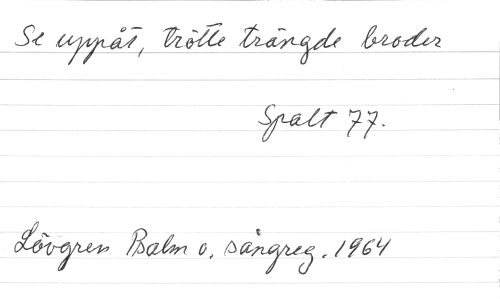 Se uppåt, trötte trängde broder
Spalt 77.
Lövgren Psalm o. sångreg. 1964